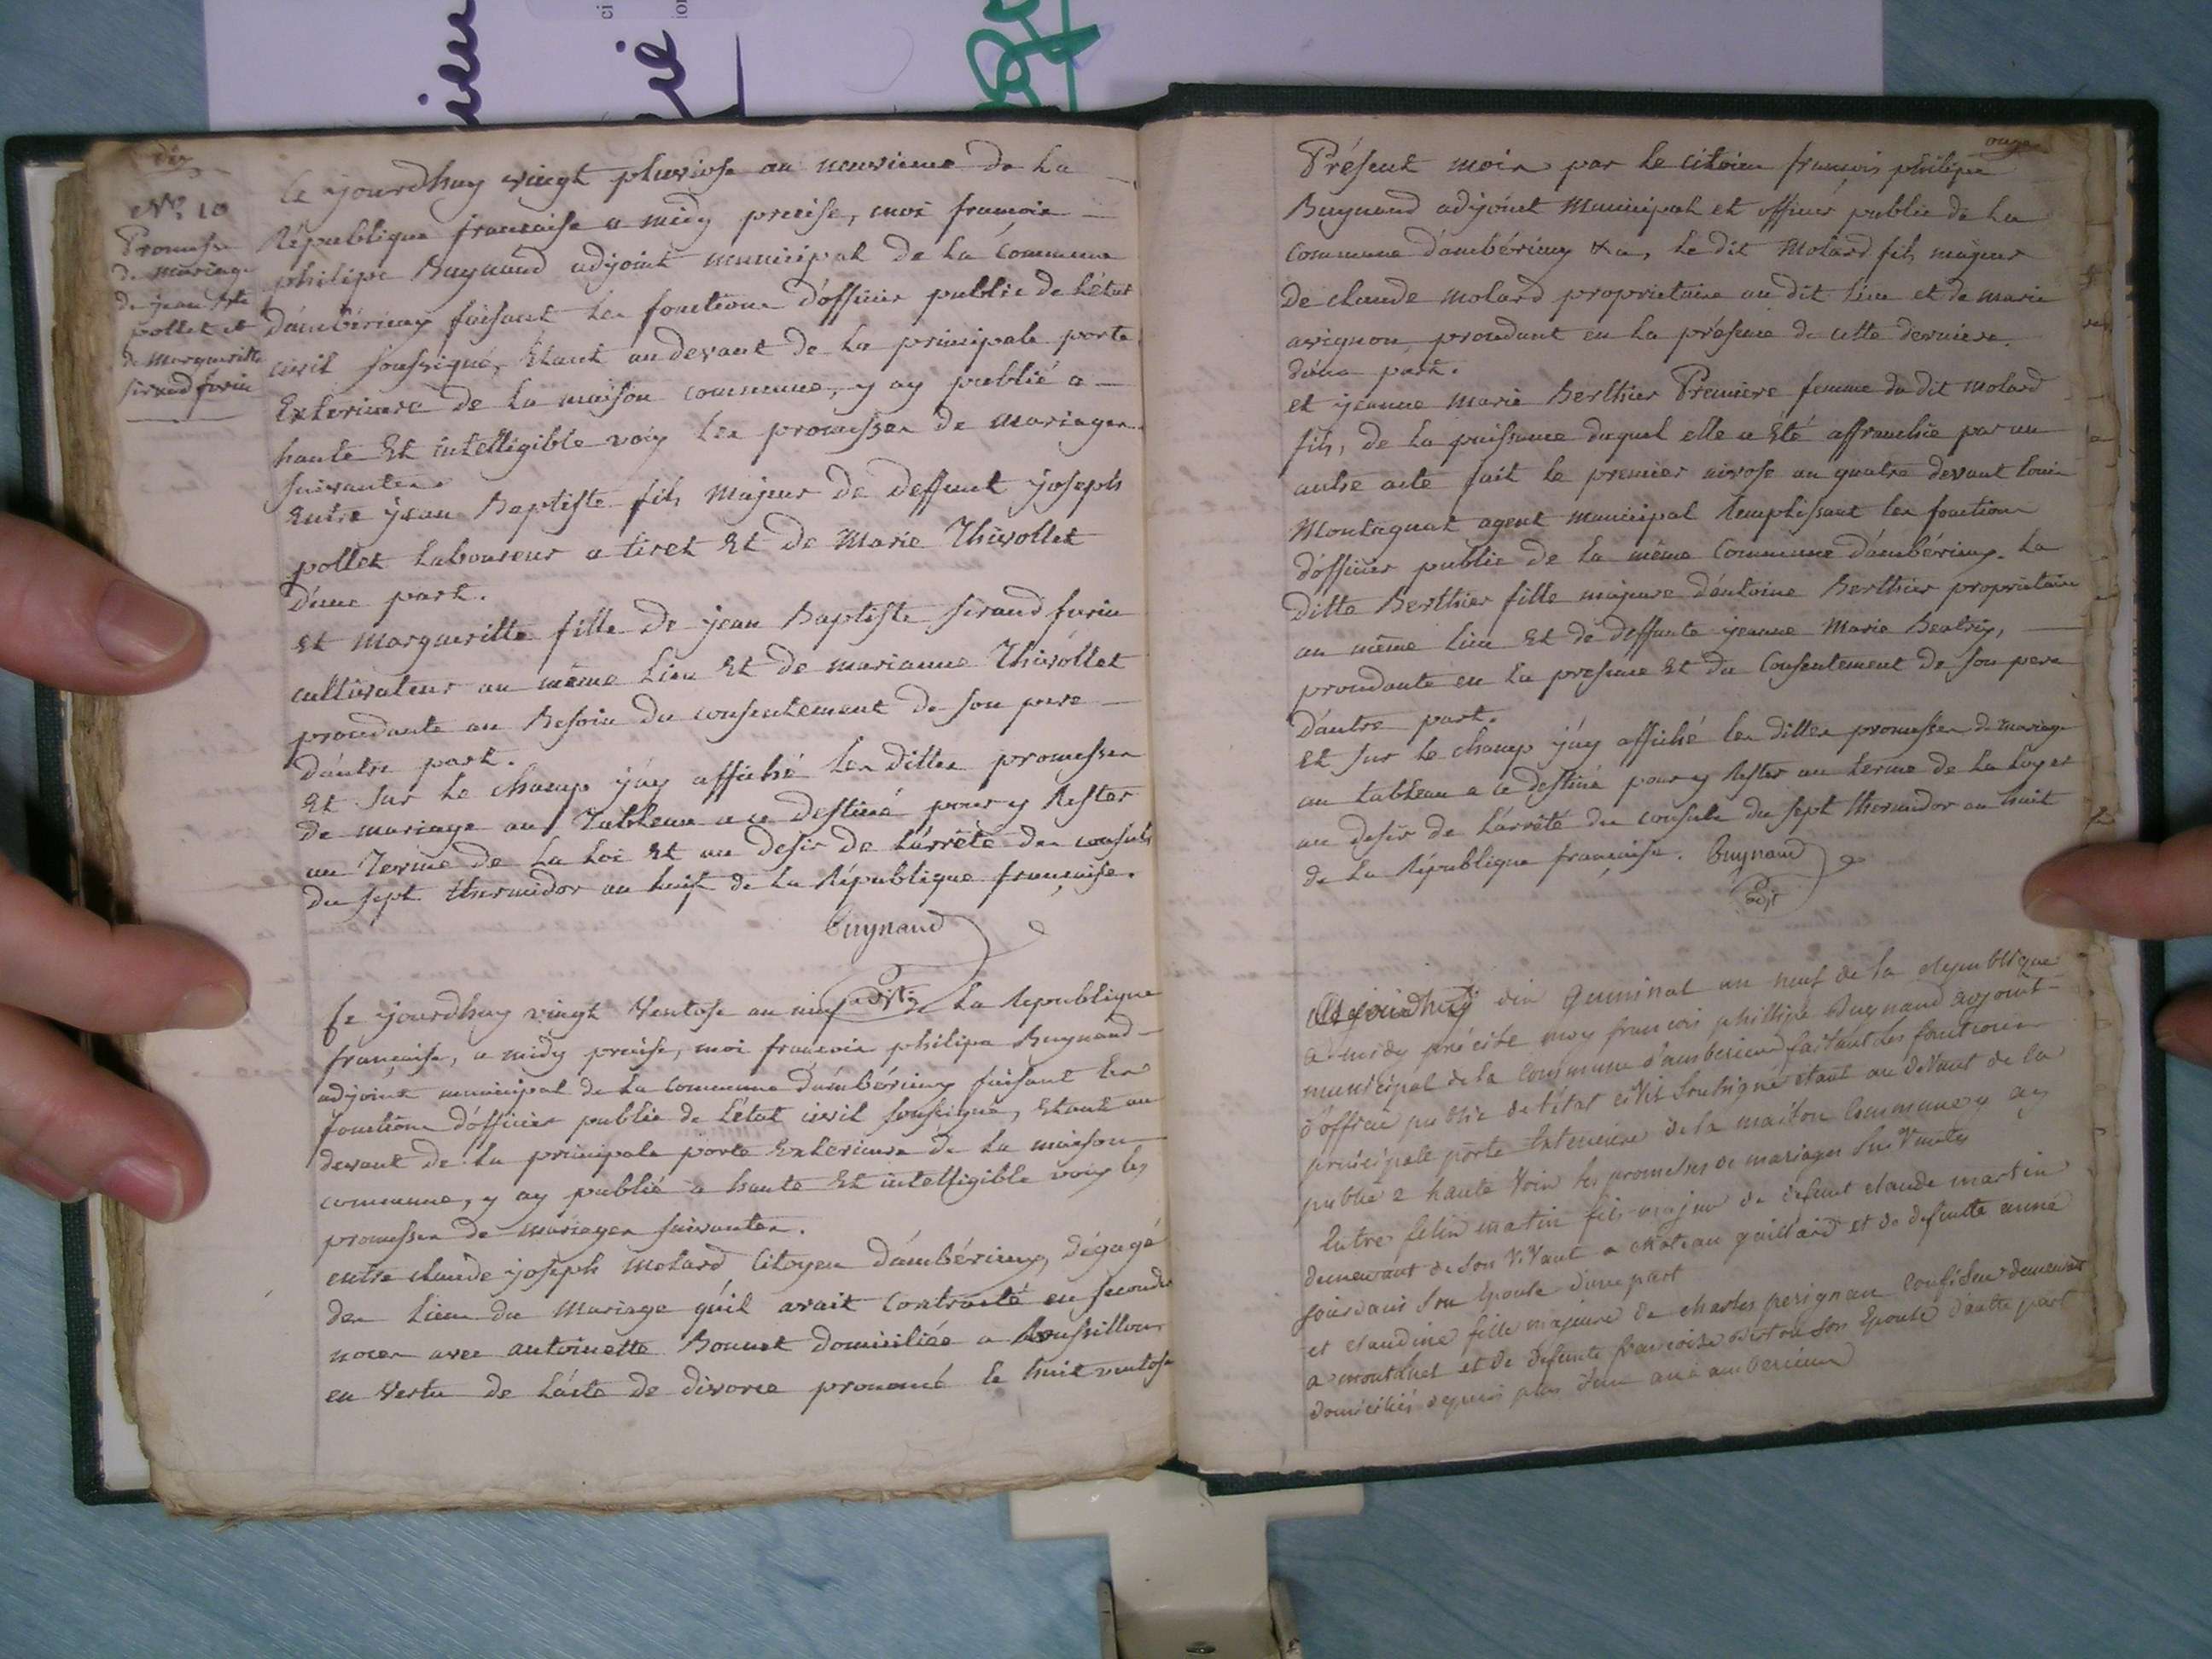 dix
N° 10
Promesse
de mariage
de jean Bte
pollet et
de margueritte
sirand furin
Ce jourdhuy vingt pluviose an neuvieme de la
République francaise a midy precise, moi francois
philipe Buynand adjoint municipal de la Commune
d'ambérieux faisant les fonctions d'officier public de l'état
civil soussigné, Étant au devant de la principale porte
Exterieure de la maison commune, y ay publié a
haute Et intelligible voix les promesses de mariages
suivantes
Entre jean Baptiste fils majeur de deffunt joseph
pollet laboureur a tiret Et de Marie Thivollet
d'une part.
Et Margueritte fille de jean Baptiste sirand furin
cultivateur au même lieu Et de marianne Thivollet
procedante au Besoin du consentement de son pere
d'autre part.
Et sur le champ j'ay affiché les dittes promesses
de mariage au Tableau a ce destiné pour y Rester
au Terme de la loi Et au desir de l'arrêté des consuls
du sept thermidor an huit de la République française.
Buynand
adjt
Ce jourdhuy vingt Ventose an neuf de la Republique
française, a midy precise, moi francois philipe Buynand
adjoint municipal de la commune d'ambérieux faisant les
fonctions d'officier public de l'état civil soussigné, Etant au
devant de la principale porte Exterieure de la maison
commune, y ay publié a haute Et intelligible voix les
promesses de mariages suivantes.
entre claude joseph molard Citoyen d'ambérieux, dégagé
des liens du mariage qu'il avait Contracté en secondes
noces avec antoinette Bonnet domiciliée a Roussillon
en Vertu de l'acte de divorce prononcé le huit ventose
onze
Présent mois par le citoien françois philipe
Buynand adjoint Municipal et officier public de la
Commune d'ambérieux &a, le dit Molard fils majeur
de claude molard proprietaire au dit lieu et de marie
avignon, procedant en la présence de cette derniere.
d'une part.
et jeanne Marie Berthier Premiere femme du dit Molard
fils, de la puissance duquel elle a Été affranchie par un
autre acte fait le premier nivose an quatre devant louis
Montagnat agent municipal Remplissant les fonctions
d'officier public de la même Commune d'ambérieux. La
ditte Berthier fille majeure d'antoine Berthier proprietaire
au même lieu Et de deffunte jeanne Marie Beatrix,
procedante en la presence Et du Consentement de son pere
d'autre part.
Et sur le champ j'ay affiché les dittes promesses de mariage
au tableau a ce destiné pour y Rester au terme de la Loy et
au desir de l'arrêté des consuls du sept thermidor an huit
de la République française. Buynand
adjt
Aujourdhuy dix Germinal an neuf de la République
a midy précise moy francois phillipe Buynand adjoint
municipal de la Commune d'amberieux faisant les fonctions
d'officie public de l'état civil Soussigné etant au devant de la
principale porte Exterieure de la maison Commune y ay
publié a haute Voix les promesses de mariages suivantes
Entre felix martin fils majeur de defunt claude martin
demeurant de son vivant a chateau gaillard et de defunte anne
jourdain son Epouse d'une part
et claudine fille majeure de charles perignan Confiseur demeurant
a montluel et de defunte francoise son Epouse d'autre part
domiciliés depuis plus d'un an a amberieux